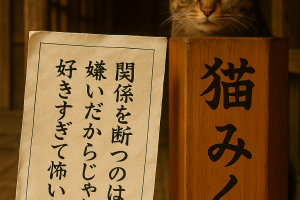 関係を断つのは
嫌いだからじゃ
好きすぎて怖い
猫みく